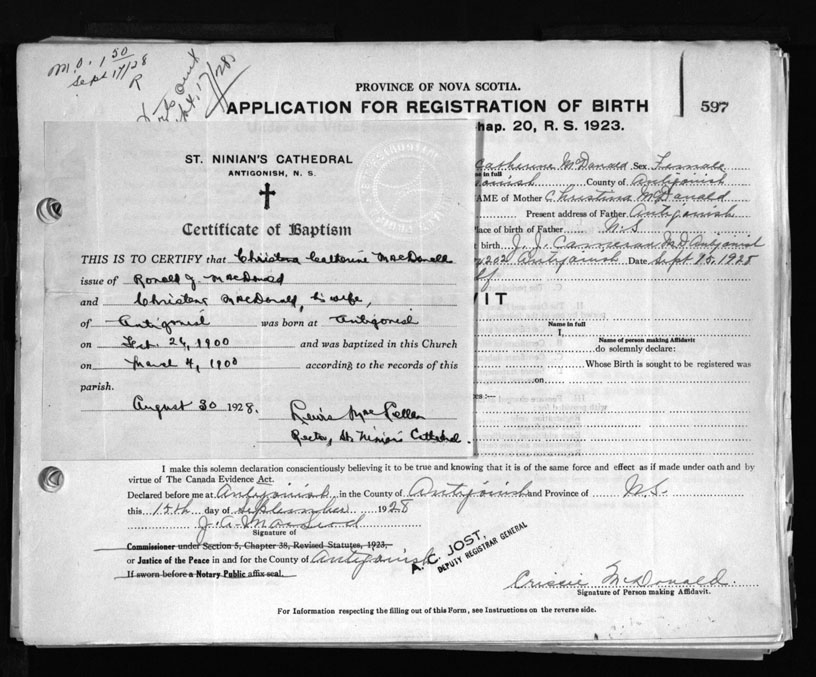 M.O. 1 50
Sept 17/28
R
Sept. 17/28
PROVINCE OF NOVA SCOTIA.
APPLICATION FOR REGISTRATION OF BIRTH
597
hap. 20, R. S. 1923.
ST. NINIAN'S CATHEDRAL
ANTIGONISH, N. S.
Certificate of Baptism
THIS IS TO CERTIFY that Christena Catherine MacDonald
issue of Ronald J. MacDonald
and Christena MacDonald, his wife,
of Antigonish was born at Antigonish
on Feb. 26, 1900 and was baptized in this Church
on March 4, 1900 according to the records of this
parish.
August 30 1928.
Rector, St. Ninian's Cathedral
Catherine McDonald Sex Female
e in full
onish County of Antigonish
AME of Mother Christina McDonald
Present address of Father Antigonish
lace of birth of Father N.S.
birth J. J. Cameron M.D. Antigonish
202 Antigonish Date Sept 25, 1928
lf
VIT
Name in full
I,
Name of person making Affidavit
do solemnly declare:
Whose Birth is sought to be registered was
on
es :—
I make this solemn declaration conscientiously believing it to be true and knowing that it is of the same force and effect as if made under oath and by
virtue of The Canada Evidence Act.
Declared before me at Antigonish in the County of Antigonish and Province of N.S.
this 15th day of September 1928
J. A. MacLeod
Signature of
Commissioner under Section 5, Chapter 38, Revised Statutes, 1923,
or Justice of the Peace in and for the County of Antigonish
If sworn before a Notary Public affix seal.
A. C. JOST,
DEPUTY REGISTRAR GENERAL
Crissie McDonald
Signature of Person making Affidavit.
For Information respecting the filling out of this Form, see Instructions on the reverse side.